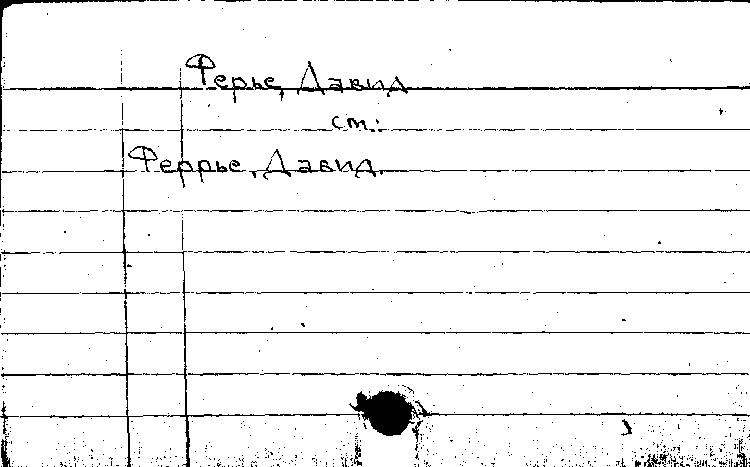 Ферье, Давид
см.:
Феррье, Давид.